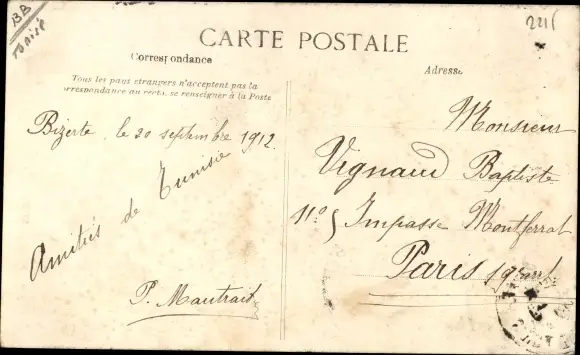 BB
Tunisie
CARTE POSTALE
Correspondance
Tous les pays étrangers n'acceptent pas la
correspondance au recto, se renseigner à la Poste
Adresse
Bizerte, le 20 septembre 1912
Amitiés de Tunisie
Monsieur
Vignaud Baptiste
11 Impasse Montferrat
Paris 19 arrt